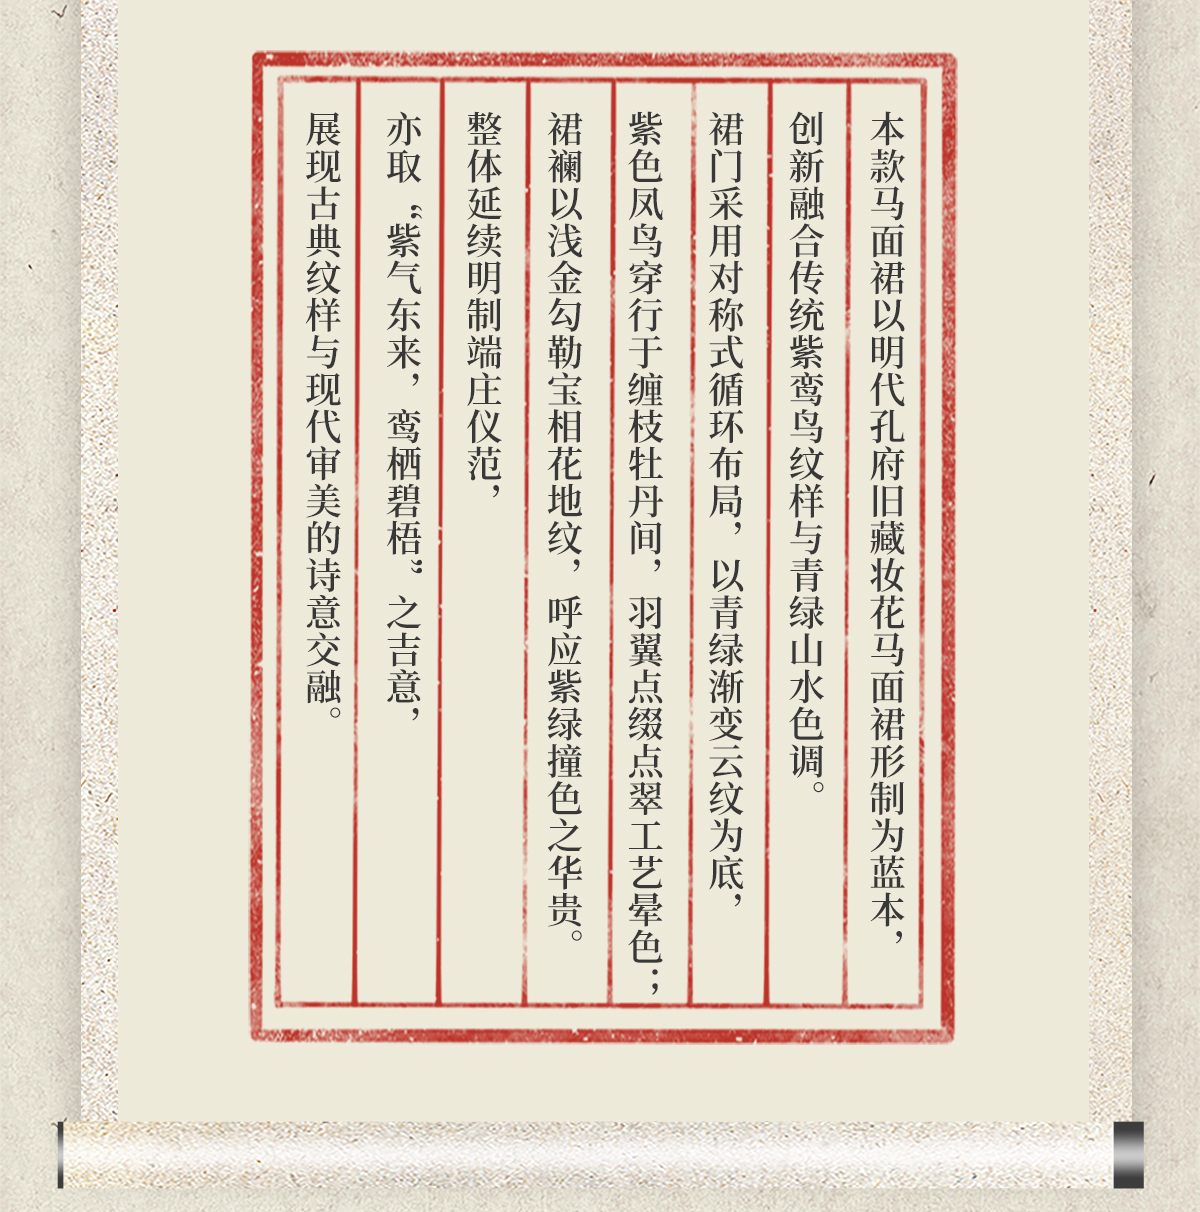 本款马面裙以明代孔府旧藏妆花马面裙形制为蓝本，
创新融合传统紫鸾鸟纹样与青绿山水色调。
裙门采用对称式循环布局，以青绿渐变云纹为底，
紫色凤鸟穿行于缠枝牡丹间，羽翼点缀点翠工艺晕色；
裙襕以浅金勾勒宝相花地纹，呼应紫绿撞色之华贵。
整体延续明制端庄仪范，
亦取“紫气东来，鸾栖碧梧”之吉意，
展现古典纹样与现代审美的诗意交融。